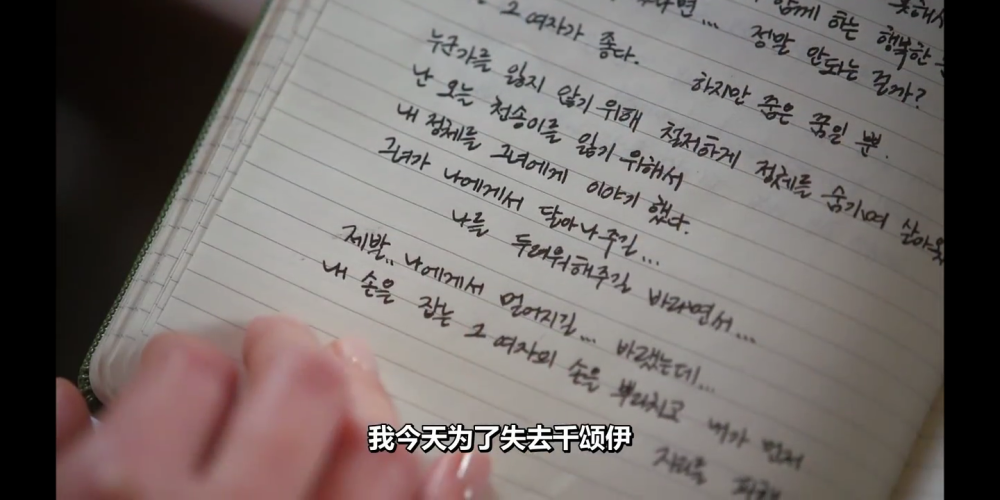 함께 하는 행복한
그 여자가 좋다. 정말 안되는 걸까?
하지만 꿈은 꿈일 뿐.
누군가를 잃지 않기 위해 철저하게 정체를 숨기며 살아왔
난 오늘 천송이를 잃기 위해서
내 정체를 그녀에게 이야기 했다.
그녀가 나에게서 달아나주길...
나를 두려워해주길 바라면서...
제발.. 나에게서 멀어지길... 바랬는데...
내 손을 잡는 그 여자의 손을 뿌리치고 내가 먼저
자리를 피해
我今天为了失去千颂伊